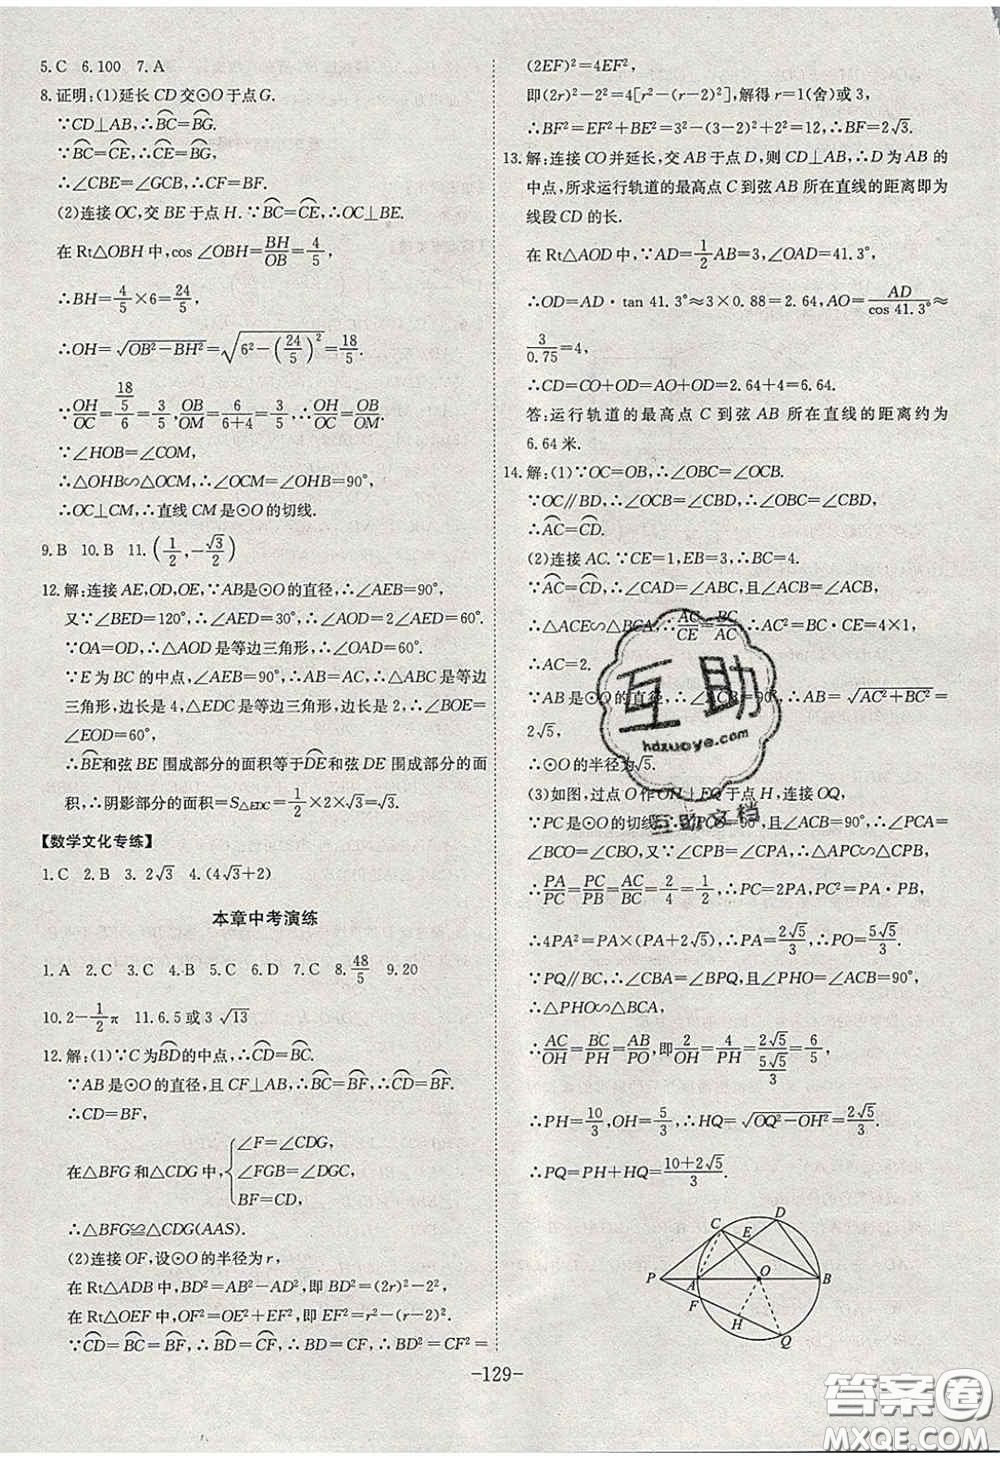 5.C 6.100 7.A
8.证明:(1)延长CD交⊙O于点G.
∵CD⊥AB,∴⌒BC=⌒BG.
∵⌒BC=⌒CE,∴⌒CE=⌒BG,
∴∠CBE=∠GCB,∴CF=BF.
(2)连接OC,交BE于点H.∵⌒BC=⌒CE,∴OC⊥BE.
在Rt△OBH中,cos∠OBH=BH/OB=4/5,
∴BH=4/5×6=24/5,
∴OH=√(OB²-BH²)=√(6²-(24/5)²)=18/5.
∵OH/OC=(18/5)/6=3/5,OB/OM=6/(6+4)=3/5,∴OH/OC=OB/OM.
∵∠HOB=∠COM,
∴△OHB∽△OCM,∴∠OCM=∠OHB=90°,
∴OC⊥CM,∴直线CM是⊙O的切线.
9.B 10.B 11.(1/2,-√3/2)
12.解:连接AE,OD,OE,∵AB是⊙O的直径,∴∠AEB=90°,
又∵∠BED=120°,∴∠AED=30°,∴∠AOD=2∠AED=60°.
∵OA=OD,∴△AOD是等边三角形,∴∠OAD=60°.
∵E为BC的中点,∠AEB=90°,∴AB=AC,∴△ABC是等边
三角形,边长是4,△EDC是等边三角形,边长是2,∴∠BOE=
∠EOD=60°,
∴⌒BE和弦BE围成部分的面积等于⌒DE和弦DE围成部分的面
积,∴阴影部分的面积=S△EDC=1/2×2×√3=√3.
【数学文化专练】
1.C 2.B 3.2√3 4.(4√3+2)
本章中考演练
1.A 2.C 3.C 4.B 5.C 6.D 7.C 8.48/5 9.20
10.2-1/2π 11.6.5或3√13
12.解:(1)∵C为⌒BD的中点,∴⌒CD=⌒BC.
∵AB是⊙O的直径,且CF⊥AB,∴⌒BC=⌒BF,∴⌒CD=⌒BF.
∴CD=BF,
在△BFG和△CDG中,{∠F=∠CDG,
∠FGB=∠DGC,
BF=CD,
∴△BFG≌△CDG(AAS).
(2)连接OF,设⊙O的半径为r,
在Rt△ADB中,BD²=AB²-AD²,即BD²=(2r)²-2²,
在Rt△OEF中,OF²=OE²+EF²,即EF²=r²-(r-2)².
∵⌒CD=⌒BC=⌒BF,∴⌒BD=⌒CF,∴BD=CF,∴BD²=CF²=
(2EF)²=4EF²,
即(2r)²-2²=4[r²-(r-2)²],解得r=1(舍)或3,
∴BF²=EF²+BE²=3²-(3-2)²+2²=12,∴BF=2√3.
13.解:连接CO并延长,交AB于点D,则CD⊥AB,∴D为AB的
中点,所求运行轨道的最高点C到弦AB所在直线的距离即为
线段CD的长.
在Rt△AOD中,∵AD=1/2AB=3,∠OAD=41.3°,
∴OD=AD·tan 41.3°≈3×0.88=2.64,AO=AD/cos 41.3°≈
3/0.75=4,
∴CD=CO+OD=AO+OD=2.64+4=6.64.
答:运行轨道的最高点C到弦AB所在直线的距离约为
6.64米.
14.解:(1)∵OC=OB,∴∠OBC=∠OCB.
∵OC∥BD,∴∠OCB=∠CBD,∴∠OBC=∠CBD,
∴⌒AC=⌒CD.
(2)连接AC.∵CE=1,EB=3,∴BC=4.
∵⌒AC=⌒CD,∴∠CAD=∠ABC,且∠ACB=∠ACB,
∴△ACE∽△BCA,∴AC/CE=BC/AC,∴AC²=BC·CE=4×1,
∴AC=2.
∵AB是⊙O的直径,∴∠ACB=90°,∴AB=√(AC²+BC²)=
2√5,
∴⊙O的半径为√5.
(3)如图,过点O作OH⊥FQ于点H,连接OQ,
∵PC是⊙O的切线,∴∠PCO=90°,且∠ACB=90°,∴∠PCA=
∠BCO=∠CBO,且∠CPB=∠CPA,∴△APC∽△CPB,
∴PA/PC=PC/PB=AC/BC=2/4=1/2,∴PC=2PA,PC²=PA·PB,
∴4PA²=PA×(PA+2√5),∴PA=2√5/3,∴PO=5√5/3.
∵PQ∥BC,∴∠CBA=∠BPQ,且∠PHO=∠ACB=90°,
∴△PHO∽△BCA,
∴AC/OH=BC/PH=AB/PO,即2/OH=4/PH=2√5/(5√5/3)=6/5,
∴PH=10/3,OH=5/3,∴HQ=√(OQ²-OH²)=2√5/3,
∴PQ=PH+HQ=(10+2√5)/3.
C
D
E
P
A
O
B
F
H
Q
互助
hdzuoye.com
互助文档
-129-
答案卷
MXQE.COM